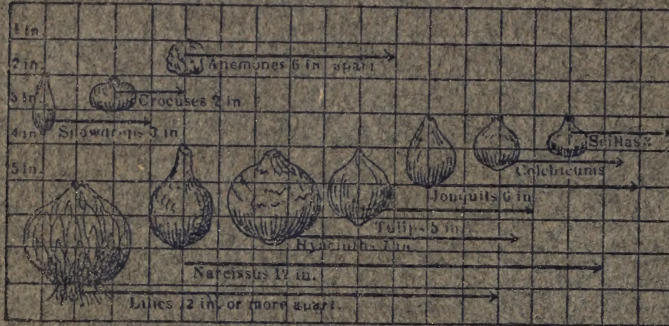 1 in.
2 in.
Anemones 6 in apart
3 in.
Crocuses 2 in
Snowdrops 3 in
4 in.
Scillas
Colchicums
5 in.
Jonquils 6 in
Tulips 5 in.
Hyacinths 7 in.
Narcissus 12 in.
Lilies 12 in. or more apart.